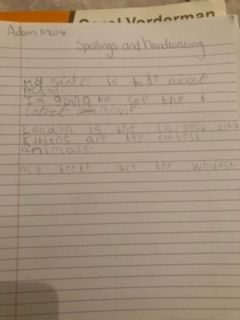 Carol Vorderman
Adam Malik
Spellings and handwriting
My sister is the nicest
I'm going to see the
latest movie
London is the largest city
Kittens are the cutest
animals.
my teeth are the whitest